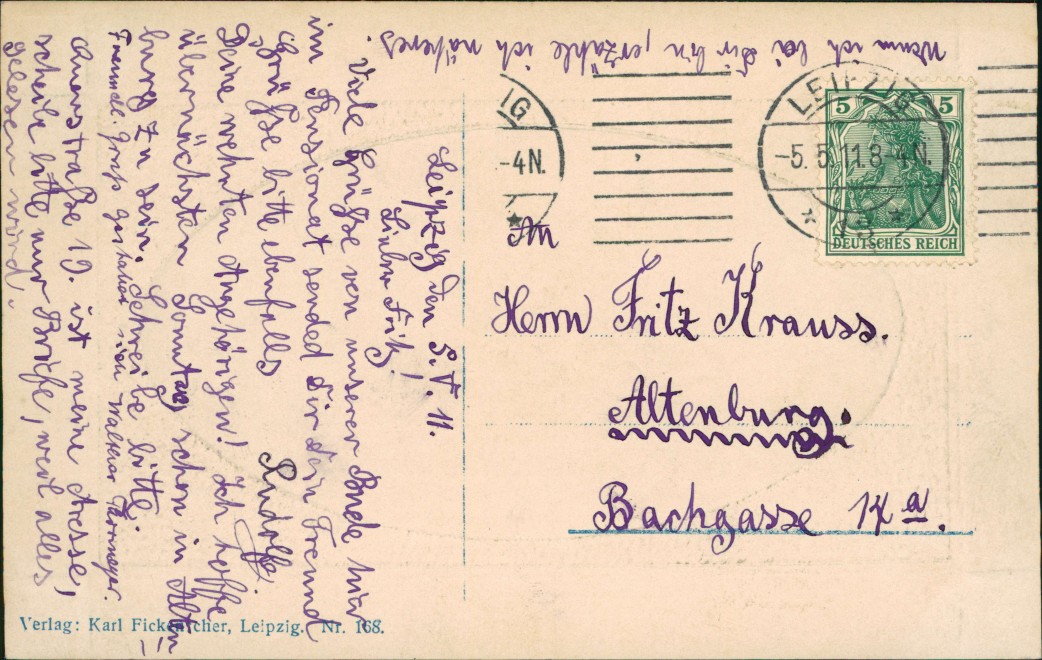 Leipzig den 5.V. 11.
Lieber Fritz!
Viele Grüsse von unserer Bude hier
im Pensionat sended Dir dein Freund
Rudolf.
Grüsse bitte ebenfalls
Deine wehrten Angehörigen! Ich hoffe
übernächsten Sonntag schon in Alten
burg zu sein. Schreibe bitte.
Freundl. Gruss gestattet sich Walther
straße 19. ist meine Adresse,
schreibe bitte nur Briefe, weil alles
gelesen wird.
!!!
Wenn ich bei Dir bin, erzähle ich näheres.
An
Herrn Fritz Krauss.
Altenburg.
Bachgasse 14 a.
LEIPZIG
-5.5.11.8-4N.
* 13 *
IG
-4N.
*
5 5
DEUTSCHES REICH
Verlag: Karl Fickenscher, Leipzig. Nr. 168.